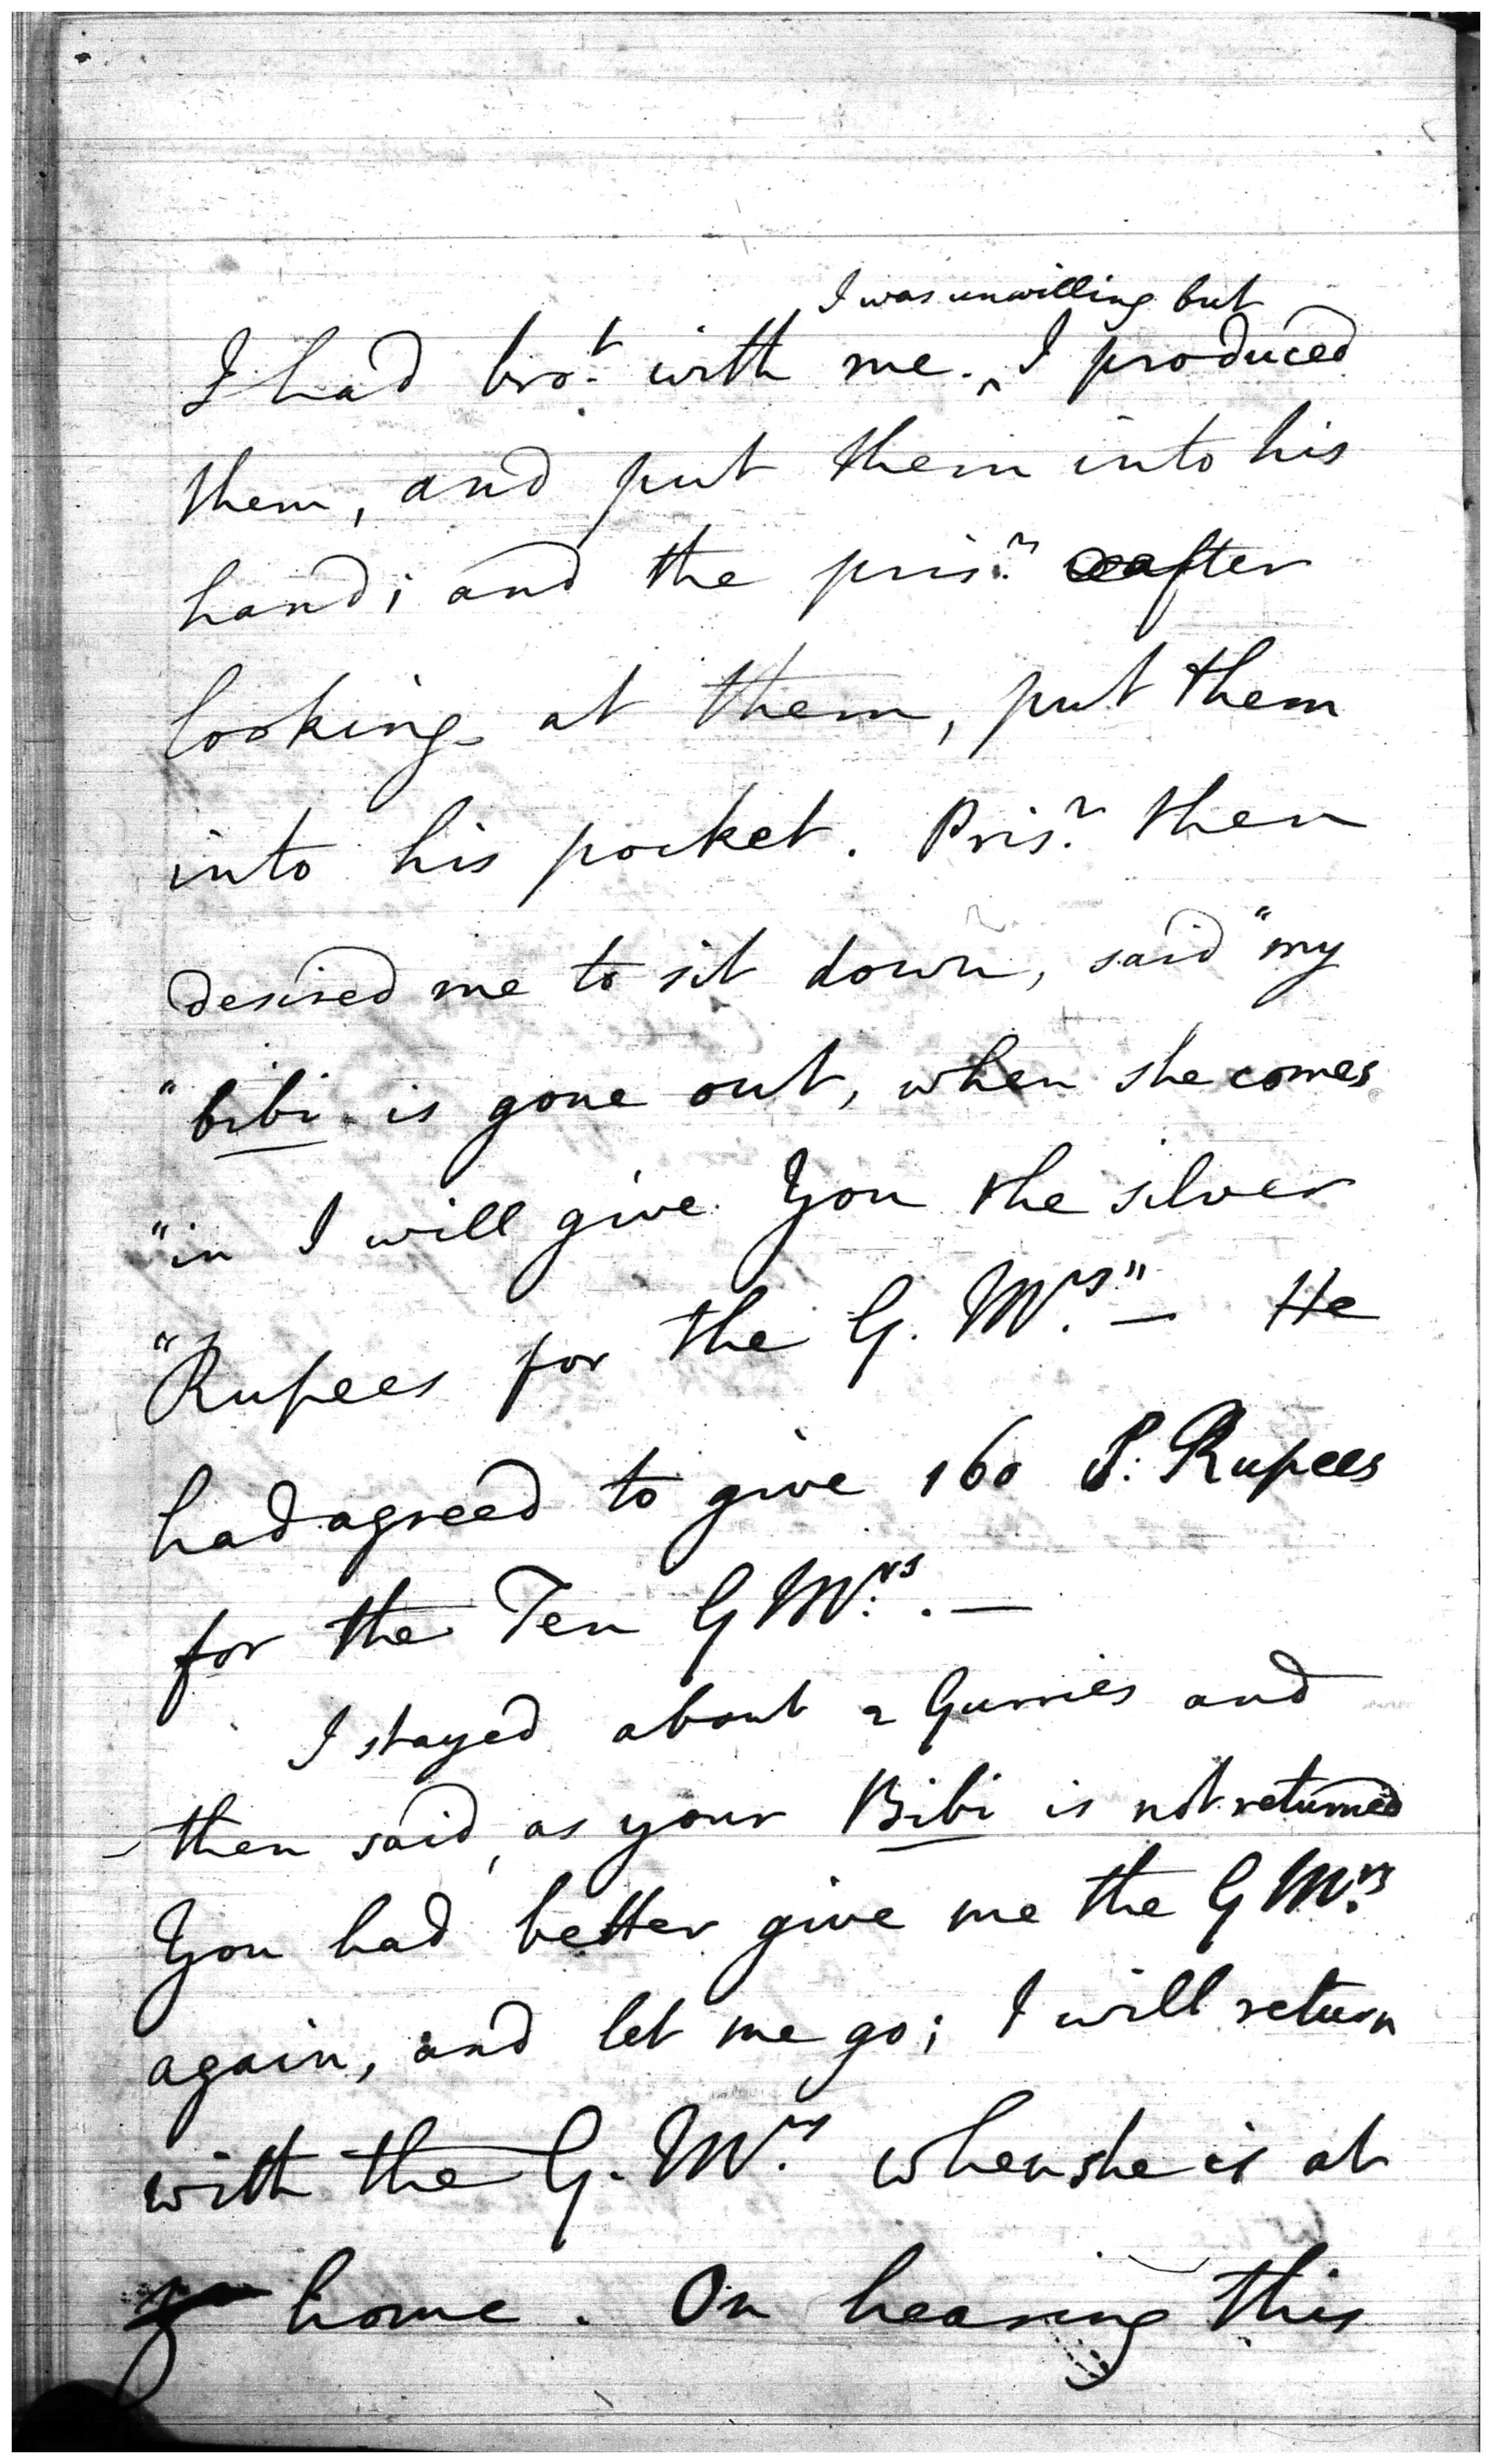 I was unwilling but
I had bro.t with me. ^ I produced
them, and put them into his
hand; and the pris.r after
looking at them, put them
into his pocket. Pris.r then
desired me to sit down, said "my
"bibi is gone out, when she comes
"in I will give You the silver
"Rupees for the G. M.rs" — He
had agreed to give 160 S. Rupees
for the Ten G M.rs. —
I stayed about 2 Gurries and
then said, as your Bibi is not returned
You had better give me the G M.rs
again, and let me go; I will return
with the G. M.rs when she is at
home. On hearing this